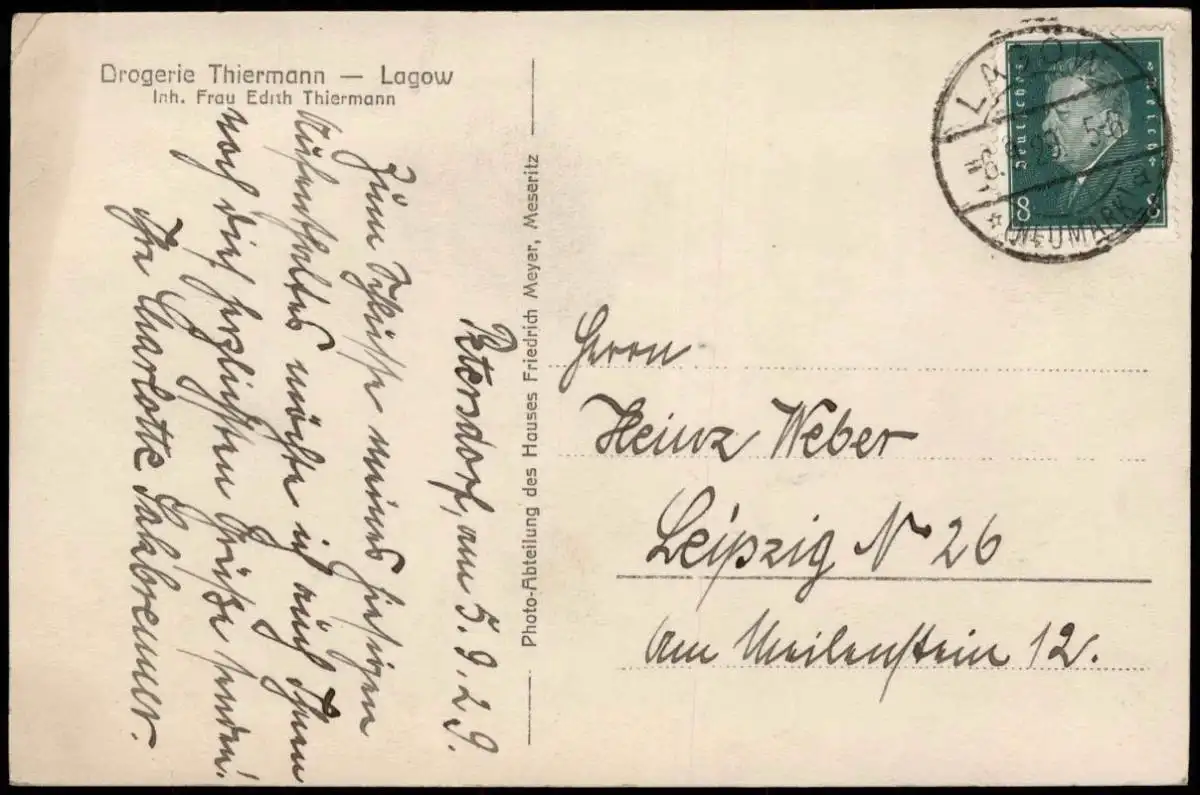 Drogerie Thiermann — Lagow
Inh. Frau Edith Thiermann
Petersdorf, am 5. 9. 29.
Zum Schlusse meines hiesigen
Aufenthaltes möchte ich auch Ihnen
noch die herzlichsten Grüße senden!
Ihre Charlotte
Photo-Abteilung des Hauses Friedrich Meyer, Meseritz
LAGOW
29. 5-6
(NEUMARK)
Deutsches Reich
8 8
Herrn
Heinz Weber
Leipzig N 26
Am Meilenstein 12.